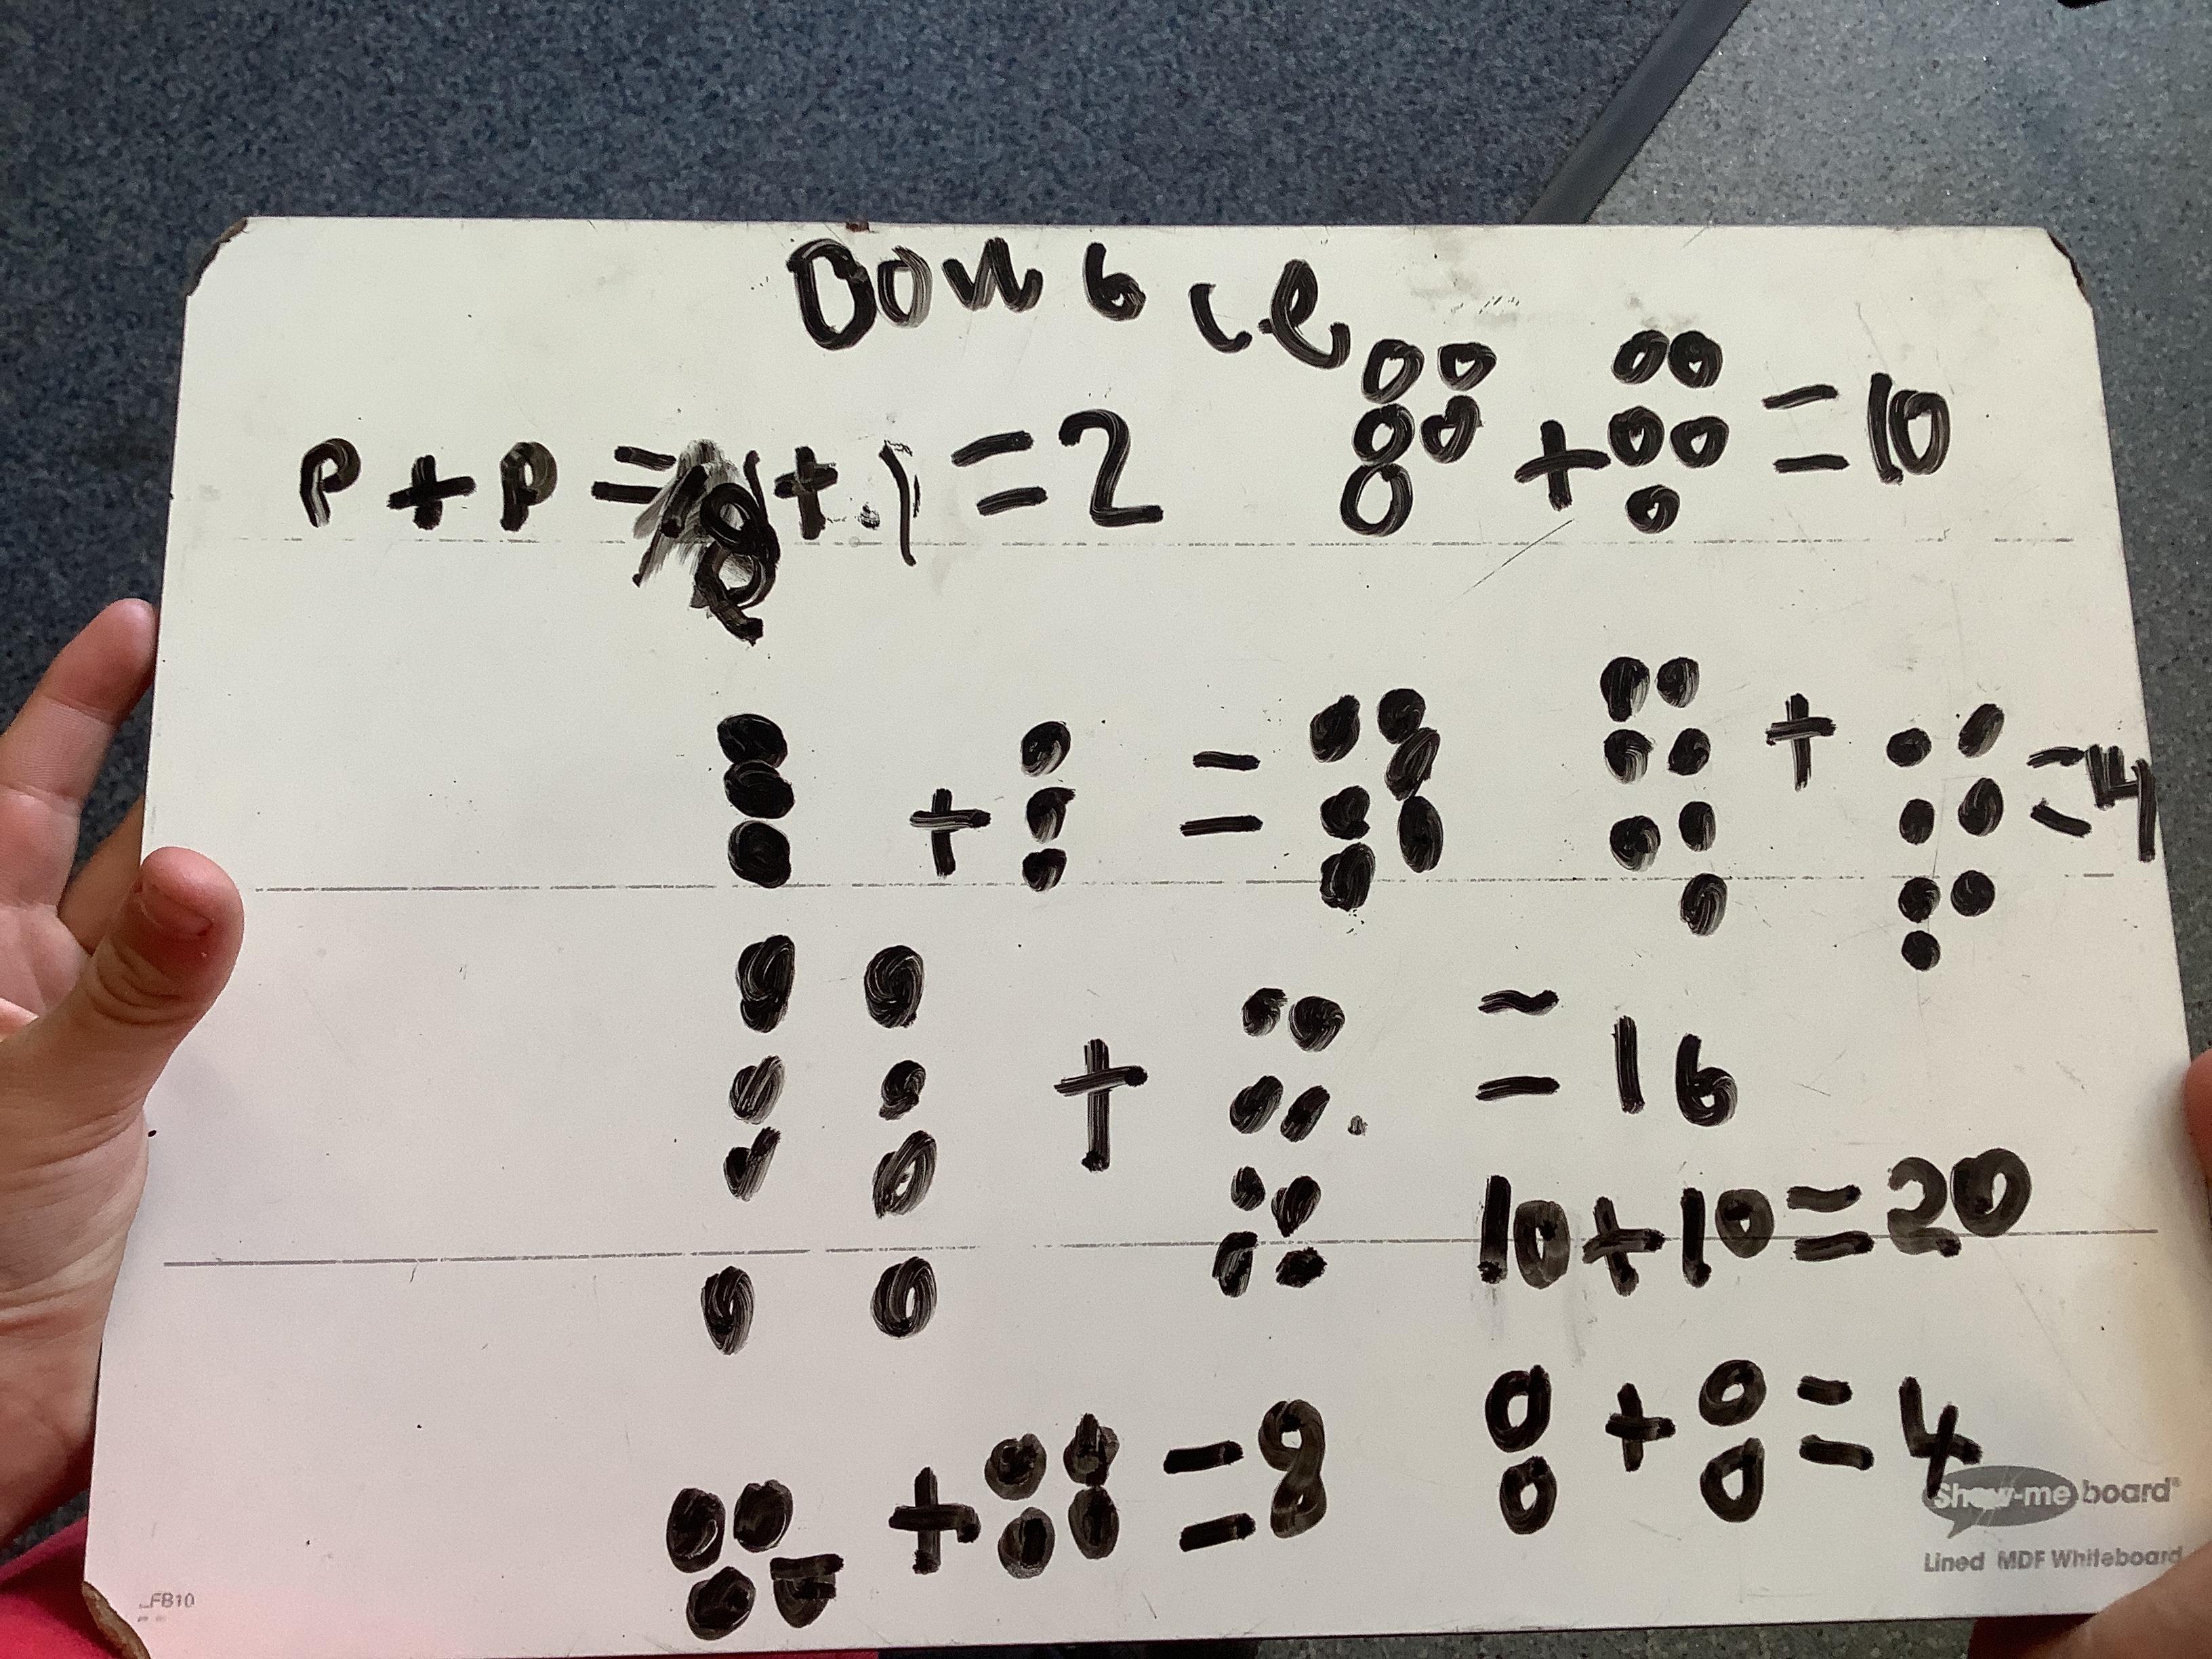 Double
P + P = 1 + 1 = 2
+ = 10
+ =
+ = 14
+ = 16
10 + 10 = 20
+ = 8
+ = 4
Show-me board®
Lined MDF Whiteboard